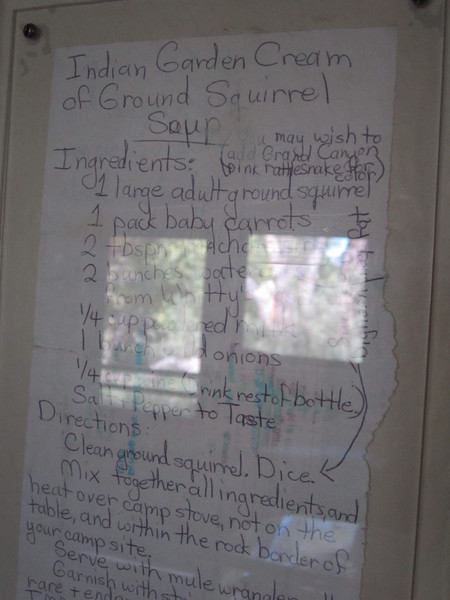 Indian Garden Cream
of Ground Squirrel
Soup
(you may wish to
add Grand Canyon
pink rattlesnake for
color)
Ingredients:
1 large adult ground squirrel
1 pack baby carrots
2 tbspn
2 bunches
from
1/4 cup powdered milk
1 bunch onions
1/4 cup wine (Drink rest of bottle.)
Salt, Pepper to Taste
Directions:
Clean ground squirrel. Dice.
Mix together all ingredients, and
heat over camp stove, not on the
table, and within the rock border of
your camp site.
Serve with mule wrangler
Garnish with
rare + end